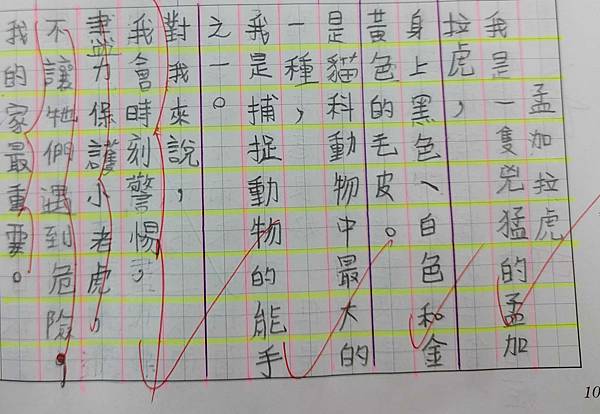 孟加拉虎
我是一隻兇猛的孟加
拉虎，
身上黑色、白色和金
黃色的毛皮。
是貓科動物中最大的
一種，
我是捕捉動物的能手
之一。
對我來說，
我會時刻警惕，
盡力保護小老虎，
不讓牠們遇到危險，
我的家最重要。
10